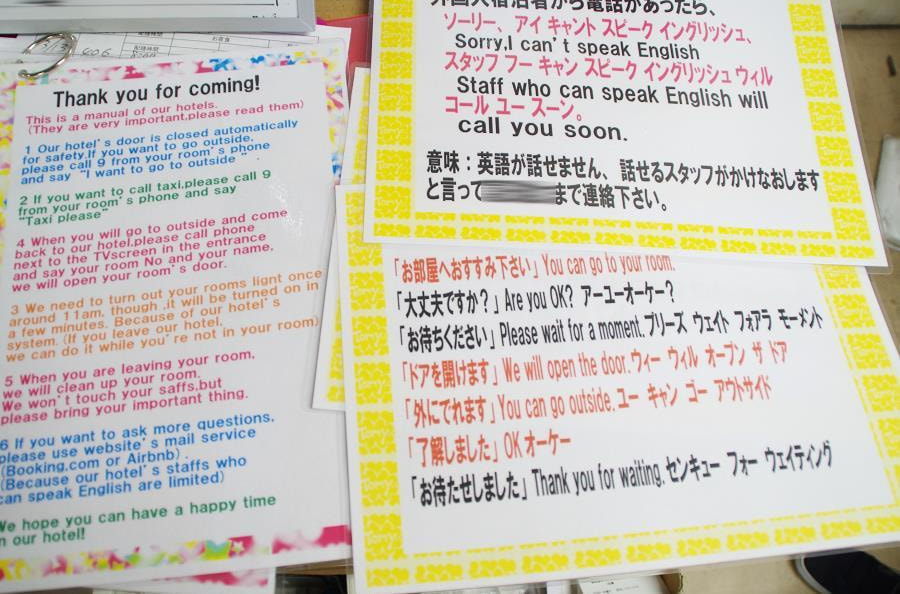 Thank you for coming!
This is a manual of our hotels.
(They are very important,please read them)
1 Our hotel's door is closed automatically
for safety.If you want to go outside,
please call 9 from your room's phone
and say "I want to go to outside ".
2 If you want to call taxi,please call 9
from your room's phone and say
"Taxi please"
4 When you will go to outside and come
back to our hotel,please call phone
next to the TVscreen in the entrance
and say your room No and your name,
we will open your room's door.
3 We need to turn out your rooms lignt once
around 11am. though.it will be turned on in
a few minutes. Because of our hotel's
system. (If you leave our hotel,
we can do it while you're not in your room)
5 When you are leaving your room,
we will clean up your room.
We won't touch your saffs,but
please bring your important thing.
6 If you want to ask more questions,
please use website's mail service
(Booking.com or Airbnb) .
(Because our hotel's staffs who
can speak English are limited)
We hope you can have a happy time
in our hotel!
外国人宿泊者から電話があったら、
ソーリー、アイ キャント スピーク イングリッシュ、
Sorry,I can't speak English
スタッフ フー キャン スピーク イングリッシュ ウィル
Staff who can speak English will
コール ユー スーン。
call you soon.
意味：英語が話せません、話せるスタッフがかけなおします
と言って まで連絡下さい。
「お部屋へおすすみ下さい」You can go to your room.
「大丈夫ですか？」Are you OK? アーユーオーケー？
「お待ちください」Please wait for a moment.プリーズ ウェイト フォアラ モーメント
「ドアを開けます」We will open the door.ウィー ウィル オープン ザ ドア
「外にでれます」You can go outside.ユー キャン ゴー アウトサイド
「了解しました」OK オーケー
「お待たせしました」Thank you for waiting.センキュー フォー ウェイティング